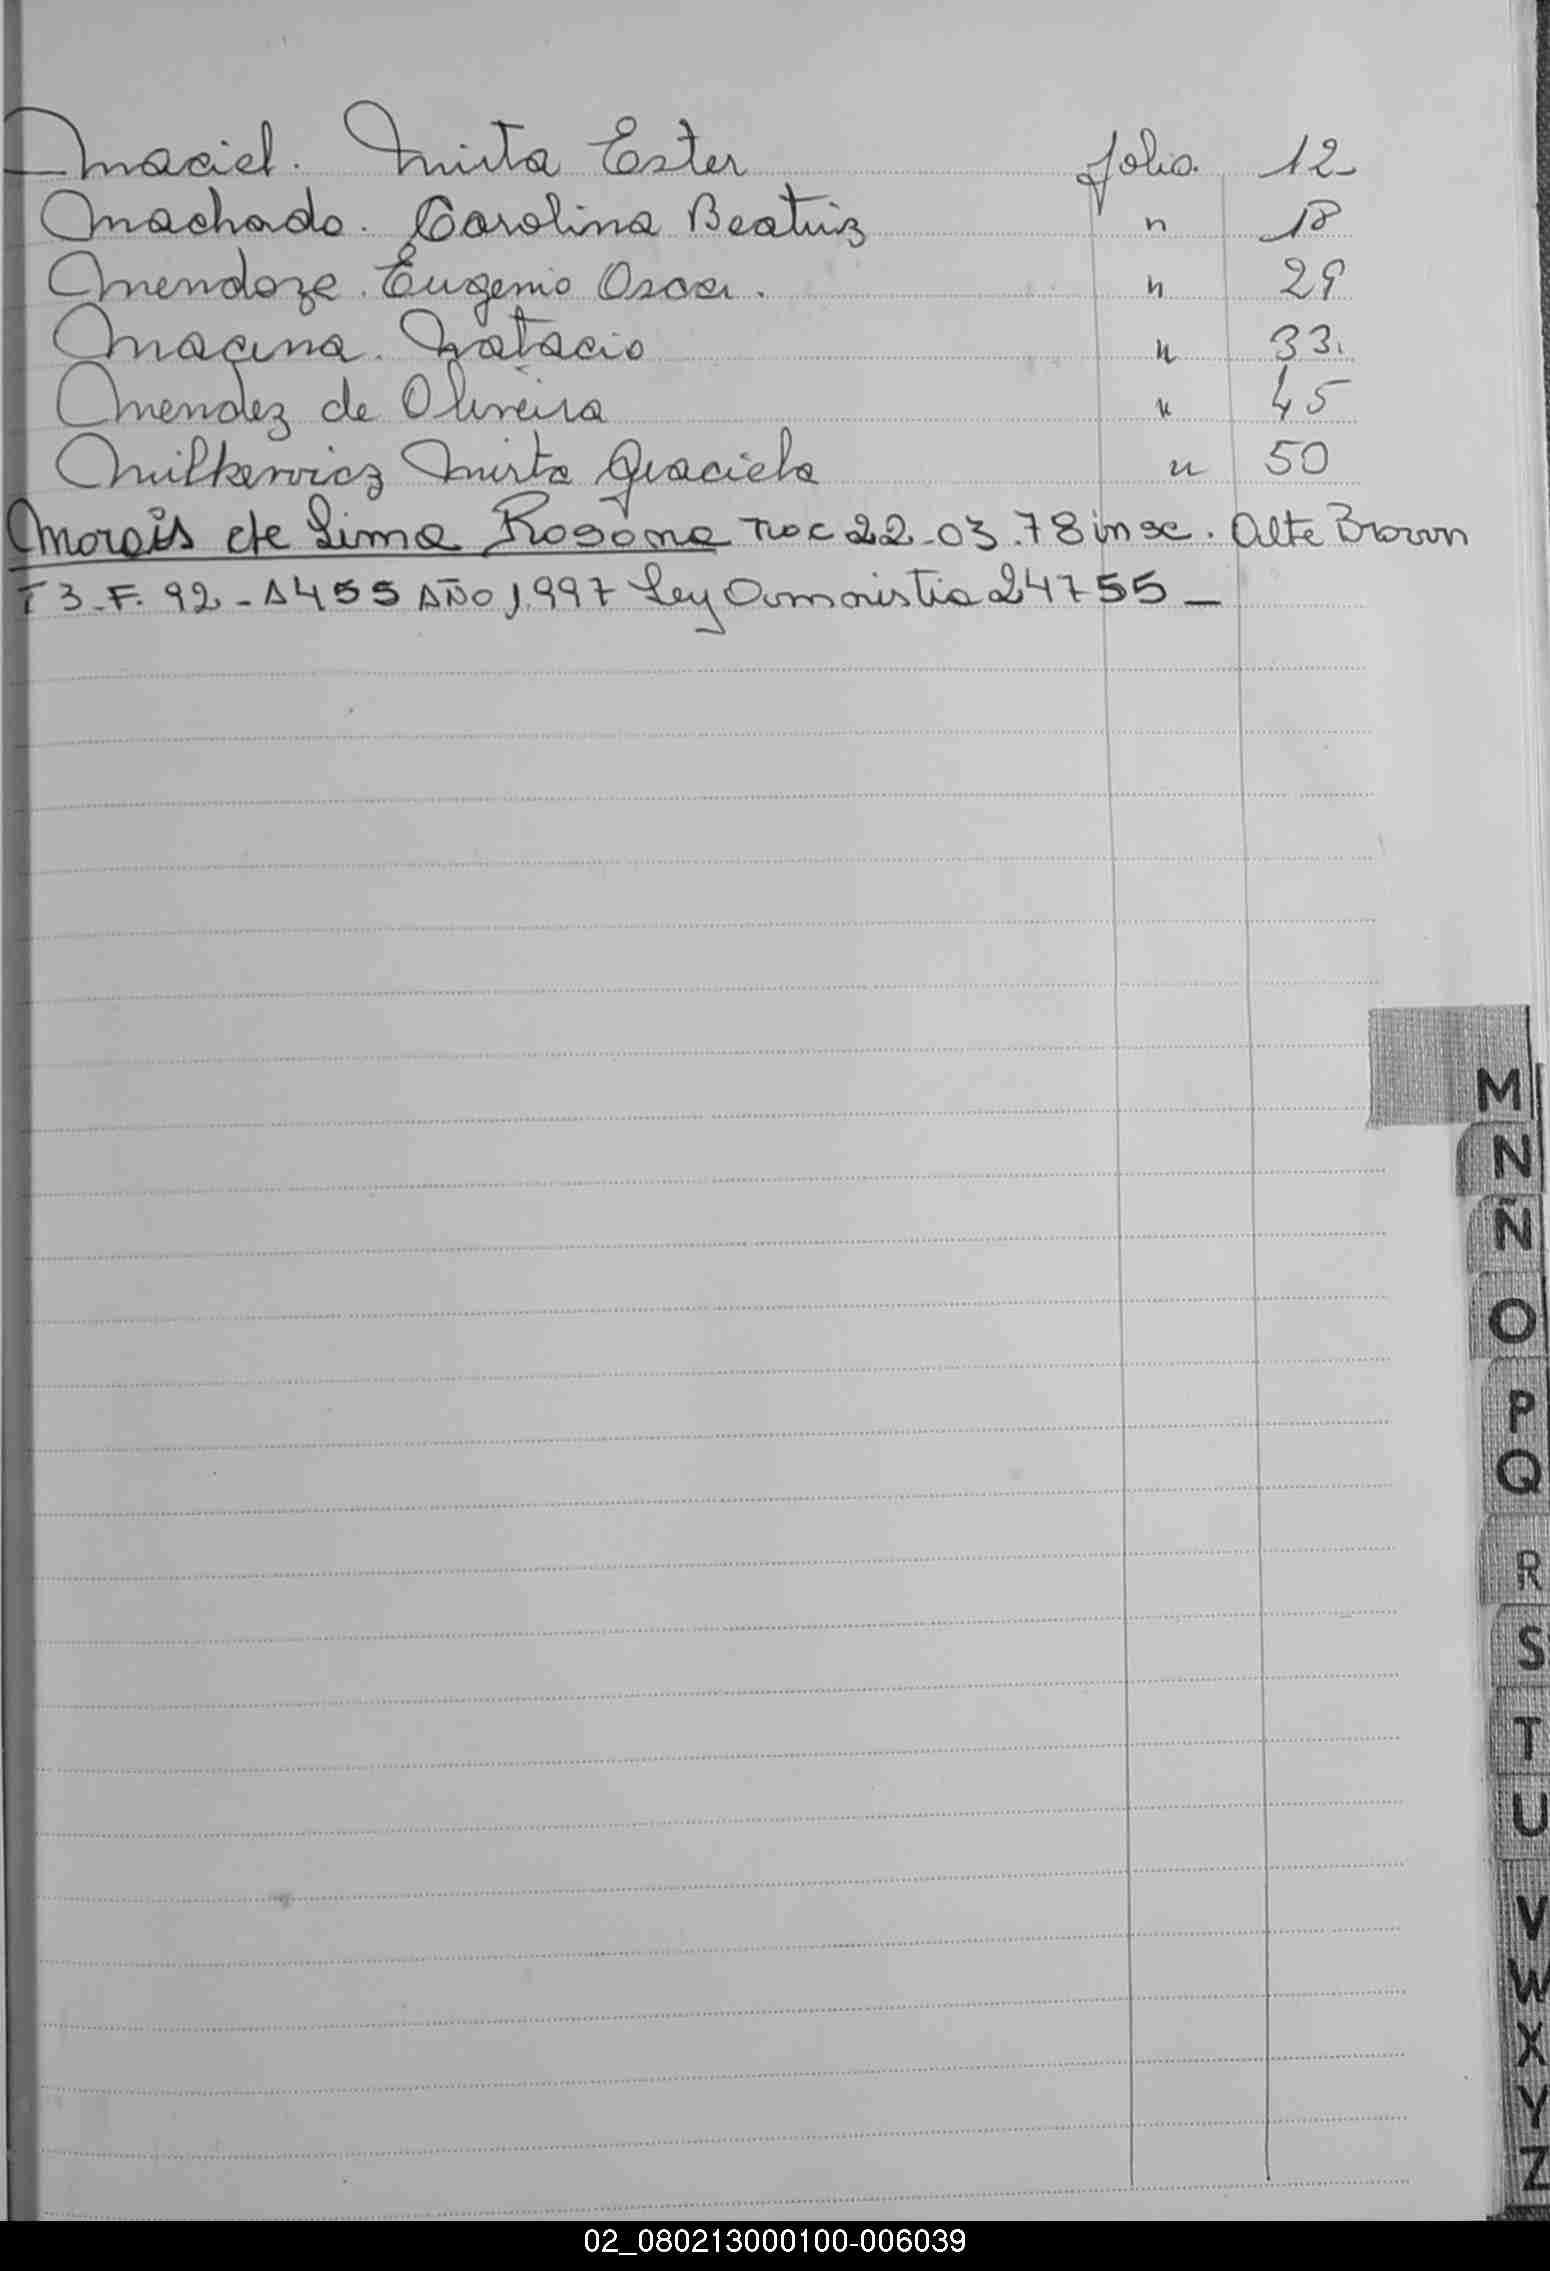 Maciel. Mirta Ester folio. 12-
Machado. Carolina Beatriz " 18
Mendoza. Eugenio Oscar. " 29
Natacio " 33.
Mendez de Oliveira " 45
Milkevicz Mirta Graciela " 50
Morais de Lima Rosana nac 22-03.78 insc. Alte Brown
T3-F. 92-A455 AÑO 1.997 Ley Amnistia 24755-
M
N
Ñ
O
P
Q
R
S
T
U
V
W
X
Y
Z
02_080213000100-006039